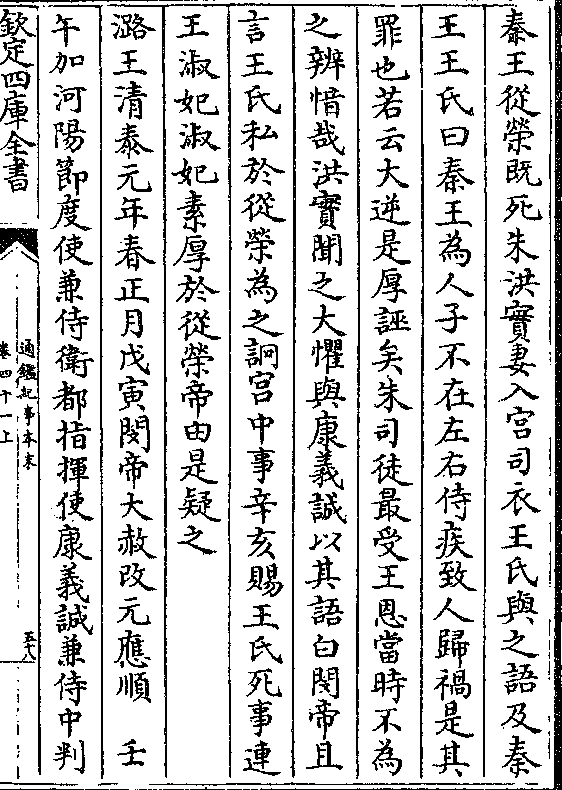 秦王從榮既死朱洪實妻入宫司衣王氏與之語及秦
王王氏曰秦王為人子不在左右侍疾致人歸禍是其
罪也若云大逆是厚誣矣朱司徒最受王恩當時不為
之辨惜哉洪實聞之大懼與康義誠以其語白閔帝且
言王氏私於從榮為之詗宫中事辛亥賜王氏死事連
王淑妃淑妃素厚於從榮帝由是疑之
潞王清泰元年春正月戊寅閔帝大赦改元應順　壬
午加河陽節度使兼侍衛都指揮使康義誠兼侍中判
欽定四庫全書
通鑑紀事本末
卷四十一上
五十八